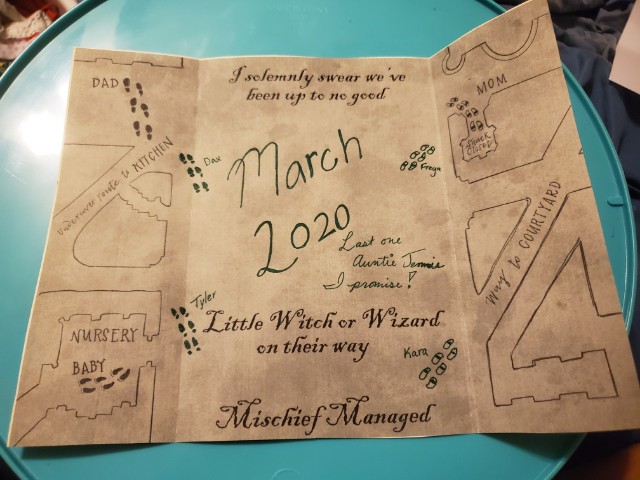 DAD
Undercover route to KITCHEN
NURSERY
BABY
I solemnly swear we've
been up to no good
Dax
Freya
March
2020
Last one
Auntie Jennie
I promise!
Tyler
Little Witch or Wizard
on their way
Kara
Mischief Managed
MOM
Snack
Closet
Way to COURTYARD